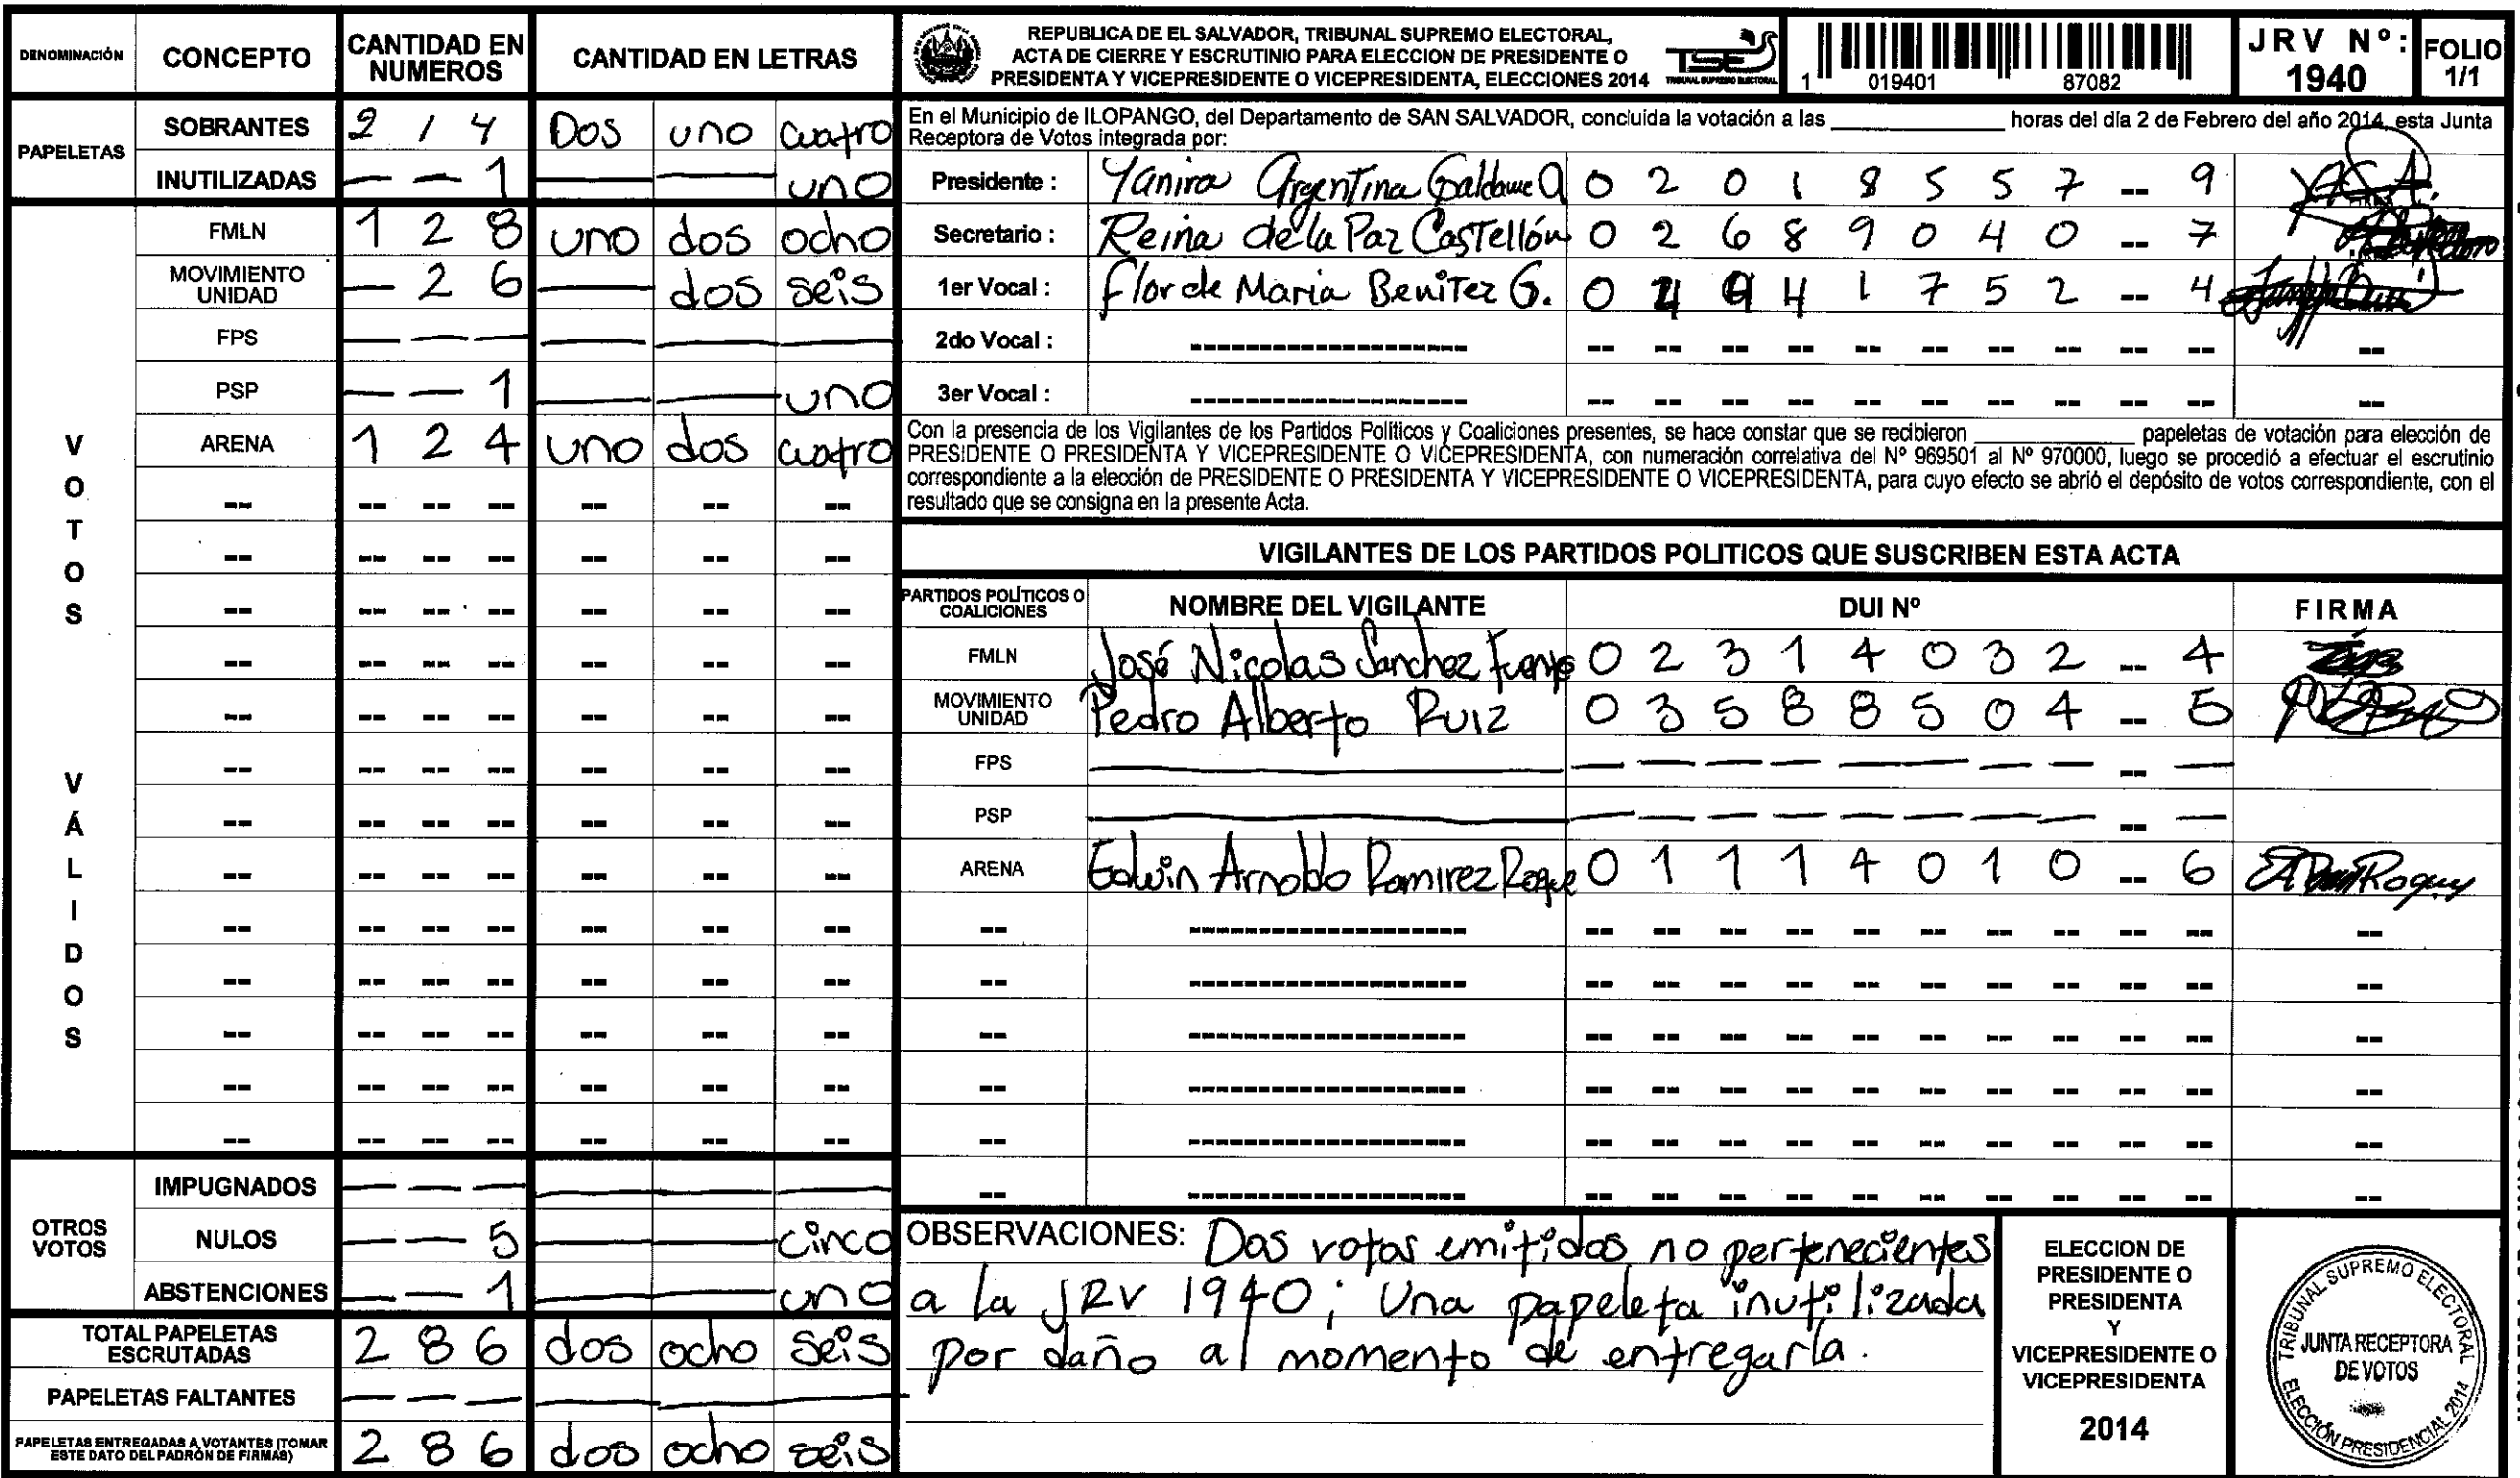 DENOMINACIÓN CONCEPTO CANTIDAD EN NUMEROS CANTIDAD EN LETRAS
PAPELETAS
SOBRANTES 2 1 4 Dos uno cuatro
INUTILIZADAS — — 1 — — uno
VOTOS VÁLIDOS
FMLN 1 2 8 uno dos ocho
MOVIMIENTO UNIDAD — 2 6 — dos seis
FPS — — — — — —
PSP — — 1 — — uno
ARENA 1 2 4 uno dos cuatro
OTROS VOTOS
IMPUGNADOS — — — — — —
NULOS — — 5 — — cinco
ABSTENCIONES — — 1 — — uno
TOTAL PAPELETAS ESCRUTADAS 2 8 6 dos ocho seis
PAPELETAS FALTANTES — — — — — —
PAPELETAS ENTREGADAS A VOTANTES (TOMAR ESTE DATO DEL PADRÓN DE FIRMAS) 2 8 6 dos ocho seis
REPUBLICA DE EL SALVADOR, TRIBUNAL SUPREMO ELECTORAL,
ACTA DE CIERRE Y ESCRUTINIO PARA ELECCION DE PRESIDENTE O
PRESIDENTA Y VICEPRESIDENTE O VICEPRESIDENTA, ELECCIONES 2014
TSE
TRIBUNAL SUPREMO ELECTORAL
1 019401 87082
JRV Nº: 1940
FOLIO 1/1
En el Municipio de ILOPANGO, del Departamento de SAN SALVADOR, concluida la votación a las ____ horas del día 2 de Febrero del año 2014, esta Junta
Receptora de Votos integrada por:
Presidente : Yanira Argentina 0 2 0 1 8 5 5 7 -- 9
Secretario : Reina de la Paz Castellón 0 2 6 8 9 0 4 0 -- 7
1er Vocal : Flor de Maria Benitez G. 0 4 1 7 5 2 -- 4
2do Vocal :
3er Vocal :
Con la presencia de los Vigilantes de los Partidos Políticos y Coaliciones presentes, se hace constar que se recibieron ____ papeletas de votación para elección de
PRESIDENTE O PRESIDENTA Y VICEPRESIDENTE O VICEPRESIDENTA, con numeración correlativa del Nº 969501 al Nº 970000, luego se procedió a efectuar el escrutinio
correspondiente a la elección de PRESIDENTE O PRESIDENTA Y VICEPRESIDENTE O VICEPRESIDENTA, para cuyo efecto se abrió el depósito de votos correspondiente, con el
resultado que se consigna en la presente Acta.
VIGILANTES DE LOS PARTIDOS POLITICOS QUE SUSCRIBEN ESTA ACTA
PARTIDOS POLÍTICOS O COALICIONES NOMBRE DEL VIGILANTE DUI Nº FIRMA
FMLN José Nicolas Sanchez Fuente 0 2 3 1 4 0 3 2 -- 4
MOVIMIENTO UNIDAD Pedro Alberto Ruiz 0 3 5 8 8 5 0 4 -- 5
FPS
PSP
ARENA Edwin Arnoldo Ramirez Roque 0 1 1 1 4 0 1 0 -- 6
OBSERVACIONES: Dos votos emitidos no pertenecientes
a la JRV 1940; Una papeleta inutilizada
por daño al momento de entregarla.
ELECCION DE
PRESIDENTE O
PRESIDENTA
Y
VICEPRESIDENTE O
VICEPRESIDENTA
2014
TRIBUNAL SUPREMO ELECTORAL
JUNTA RECEPTORA
DE VOTOS
ELECCIÓN PRESIDENCIAL 2014